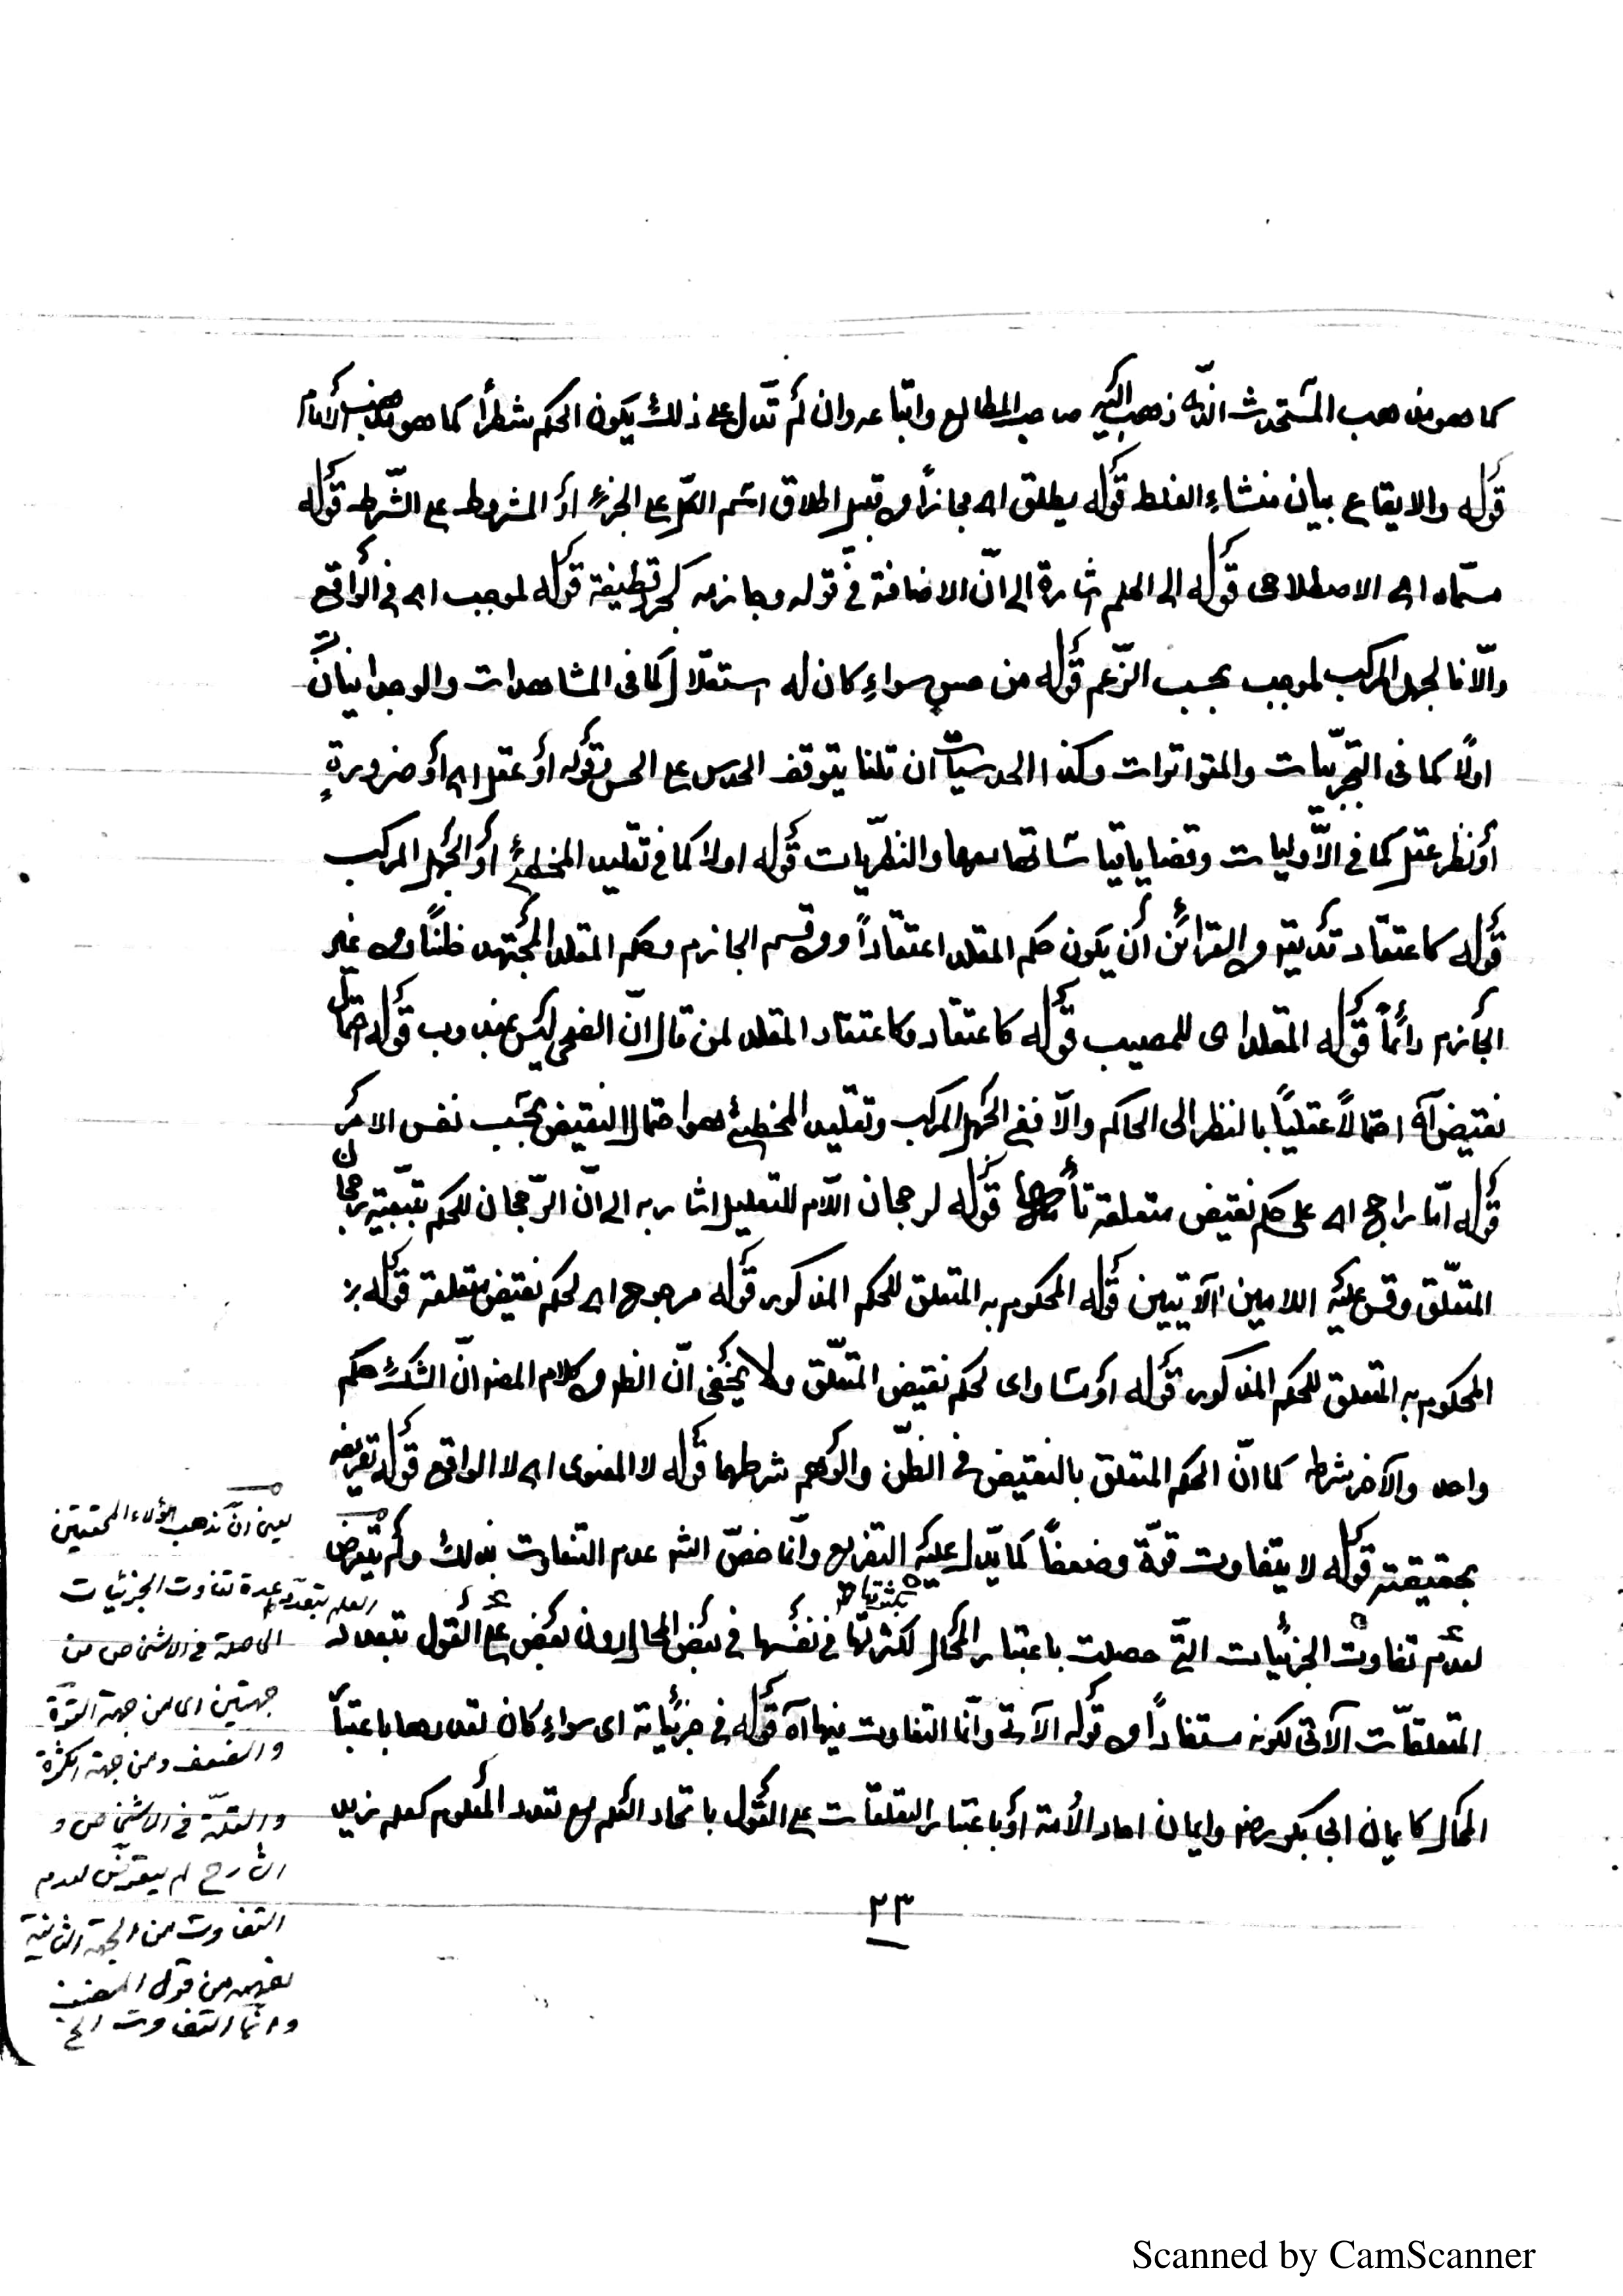 كما هو مذهب المستحدث الذى ذهب اليه صاحب المطالع واتباعه وان لم تدل على ذلك يكون الحكم شطرا كما هو مذهب الأمام
قوله والايقاع بيان منشاء الغلط قوله يطلق اى مجازا من قبيل اطلاق اسم الكل على الجزء او المشروط على الشرط قوله
مسماه اى الاصطلاحى قوله الى العلم اشارة الى ان الاضافة فى قوله وجازمه كجرد قطيفة قوله لموجب اى فى الواقع
والا فالجهل المركب لموجب بحسب الزعم قوله من حس سواء كان له استقلال كما فى المشاهدات والوجدانيات
اولا كما فى التجربيات والمتواترات وكذا الحدسيات ان قلنا يتوقف الحدس على الحس وقوله او عقل اى او ضرورة
او نظر عقل كما فى الأوليات وقضايا قياساتها معها والنظريات قوله اولا كما فى تقليد المخطئ او الجهل المركب
قوله كاعتقاد من القرائن أن يكون حكم المقلد اعتقادا ومن قسم الجازم وحكم المقلد المجتهد ظنا ومن غير
الجازم دائما قوله المقلد اى للمصيب قوله كاعتقاد وكاعتقاد المقلد لمن قال ان الضحى ليس بمندوب قوله احتمال
نقيض اه احتمالا عقليا بالنظر الى الحاكم والا ففى الجهل المركب وتقليد المخطئ هو احتمال النقيض بحسب نفس الامر
قوله اما راجح اى على حكم نقيض متعلقه قوله لرجحان اللام للتعليل اشار به الى ان الرجحان للحكم بتبعية رجحان
المتعلق وقس عليه اللامين الآتيين قوله المحكوم به المتعلق للحكم المذكور قوله مرجوح اى لحكم نقيض متعلقه قوله
المحكوم به المتعلق للحكم المذكور قوله او مساو اى لحكم نقيض المتعلق ولا يخفى ان الظ من كلام المصنف ان الشك حكم
واحد والآخر شرط كما ان الحكم المتعلق بالنقيض فى الظن والوهم شرطهما قوله لا المغوى اى لا الواقع قوله تعريفه
بحقيقته قوله لا يتفاوت قوة وضعفا كما يدل عليه التفريع وانما خص الشم عدم التفاوت بذلك ولم يتعرض
لعدم تفاوت الجزئيات التى حصلت باعتبار المحال لكثرتها فى نفسها فى بعض المحال دون بعض على القول بتعدد
المتعلقات الآتى لكونه مستفادا من قوله الآتى وانما التفاوت فيها اه قوله فى جزئياته اى سواء كان تعددها باعتبار
المحال كايمان ابى بكر رضه وايمان احاد الأمة او باعتبار التعلقات على القول باتحاد العلم مع تعدد المعلوم كعلم زيد
٢٣
يعنى ان مذهب هؤلاء المحققين
عدة تفاوت الجزئيات
الحاصلة فى الاشخاص من
جهتين اى من جهة القوة
والضعف ومن جهة الكثرة
والقلة فى الاشخاص و
الشارح لم يتعرض لعدم
التفاوت من الجهة الثانية
لفهمه من قول المصنف
وانما التفاوت الخ
Scanned by CamScanner